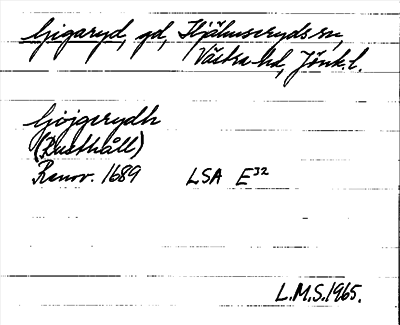 Ljigaryd, gd, Kjöhuseryds sn,
Västra hd, Jönk l.
Ljöjgerydh
(Rusthåll)
Renov. 1689 LSA E³²
L.M.S. 1965.